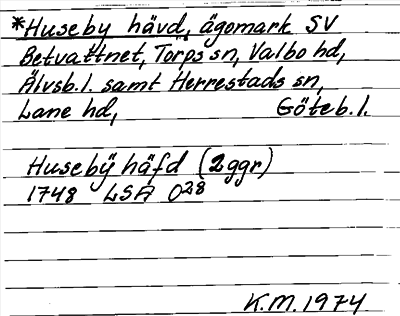 *Huseby hävd, ägomark SV
Betvattnet, Torps sn, Valbo hd,
Älvsb.l. samt Herrestads sn,
Lane hd, Göteb.l.
Husebÿ häfd (2ggr)
1748 LSA O28
K.M.1974